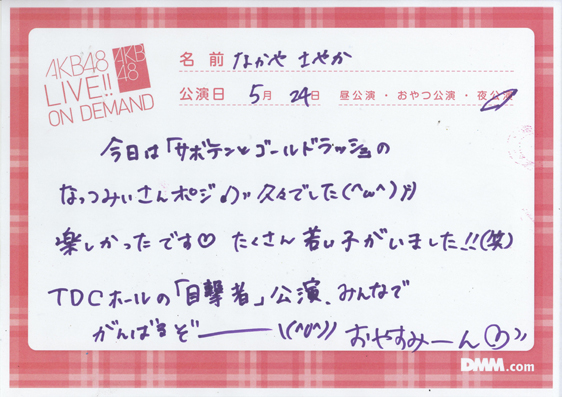 AKB48
LIVE!!
ON DEMAND
AKB
48
名前 なかや さやか
公演日 5月 24日 昼公演・おやつ公演・夜公演
今日は「サボテンとゴールドラッシュの
なっつみぃさんポジ♪ 久々でした(^ω^)
楽しかったです♡ たくさん若い子がいました!!(笑)
TDCホールの「目撃者」公演、みんなで
がんばるぞー \(^o^)/ おやすみーん
DMM.com